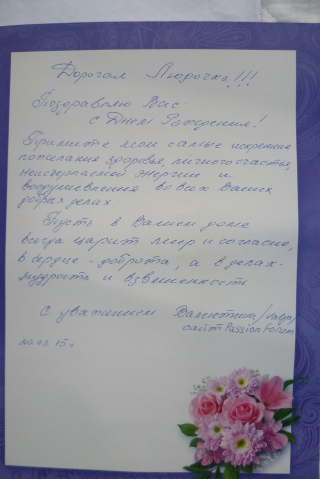 Дорогая Людочка!!!
Поздравляю Вас
с Днем Рождения!
Примите мои самые искренние
пожелания здоровья, личного счастья,
неисчерпаемой энергии и
воодушевления во всех Ваших
добрых делах.
Пусть в Вашем доме
всегда царит мир и согласие,
в сердце - доброта, а в делах -
мудрость и взвешенность
С уважением Валентина/Valja/
сайт Passion Forum
20.02 15 г